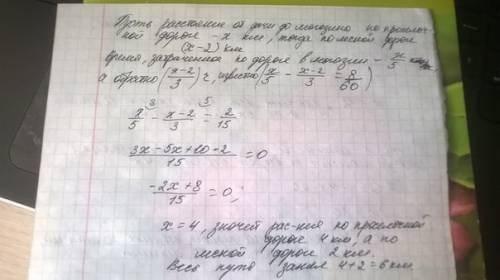 Пусть расстояние от дачи до магазина по просёлоч-
ной дороге - x км, тогда по лесной дороге
(x-2) км
Время, затраченное по дороге в магазин - x/5
а обратно (x-2)/3 ч, (x/5 - (x-2)/3 = 8/60)
x/5 - (x-2)/3 = 2/15
(3x - 5x + 10 - 2)/15 = 0
(-2x + 8)/15 = 0;
x = 4, значит рас-ние по просёлочной
дороге 4 км, а по
лесной дороге 2 км.
Весь путь занял 4+2=6 км.